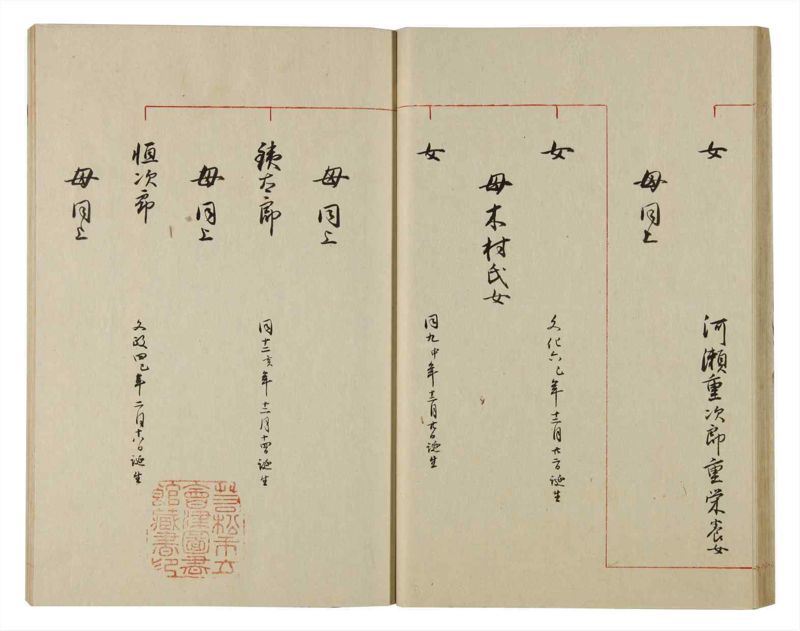 女
河瀬重次郎重栄養女
母同上
女
文化六巳年十二月廿二日誕生
母木村氏女
女
同九申年十二月廿日誕生
母同上
銕太郎
同十二亥年十二月十四日誕生
母同上
恒次郎
文政四巳年二月十六日誕生
母同上
若松市立
會津圖書
館藏書印